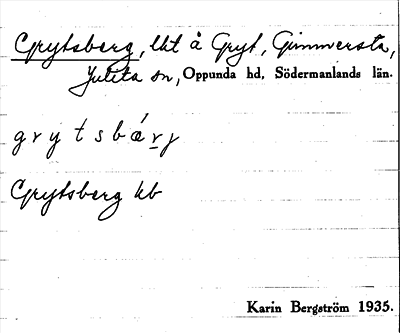 Grytsberg, lht å Gryt, Gimmersta,
Julita sn, Oppunda hd, Södermanlands län.
g r y t s b ǽ r̲ j
Grytsberg kb
Karin Bergström 1935.